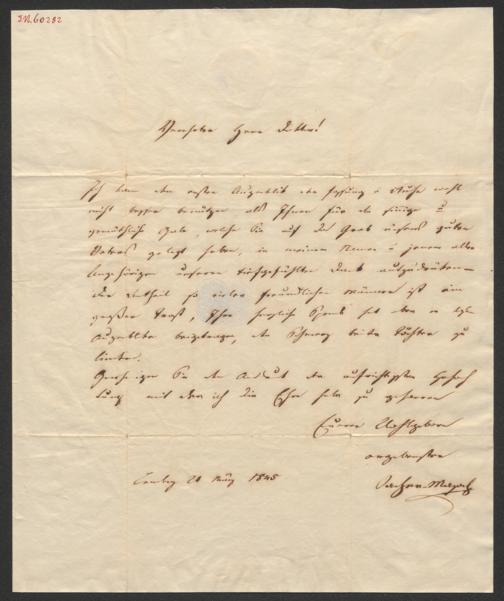 I.N. 60282
Verehrter Herr Doktor!
Ich kann den ersten Augenblick der Fassung u Ruhe wohl
nicht besser benützen als Ihnen für die innige u
gemüthliche Gabe, welche Sie auf das Grab unseres guten
Vaters gelegt haben, in meinem Namen u jenem aller
Angehörigen unseren tiefgefühlten Dank auszudrücken
Die Theil so vieler freundlichen Männer ist ein
großer Trost, Ihre herzliche Spende hat aber
Augenblicke beigetragen, den Schmerz beider Töchter zu
lindern.
Genehmigen Sie den Ausdruck der aufrichtigsten Hochach
tung mit der ich die Ehre habe zu geharren
Euerer Wohlgeboren
ergebenster
20 März 1845
Sacher-Masoch